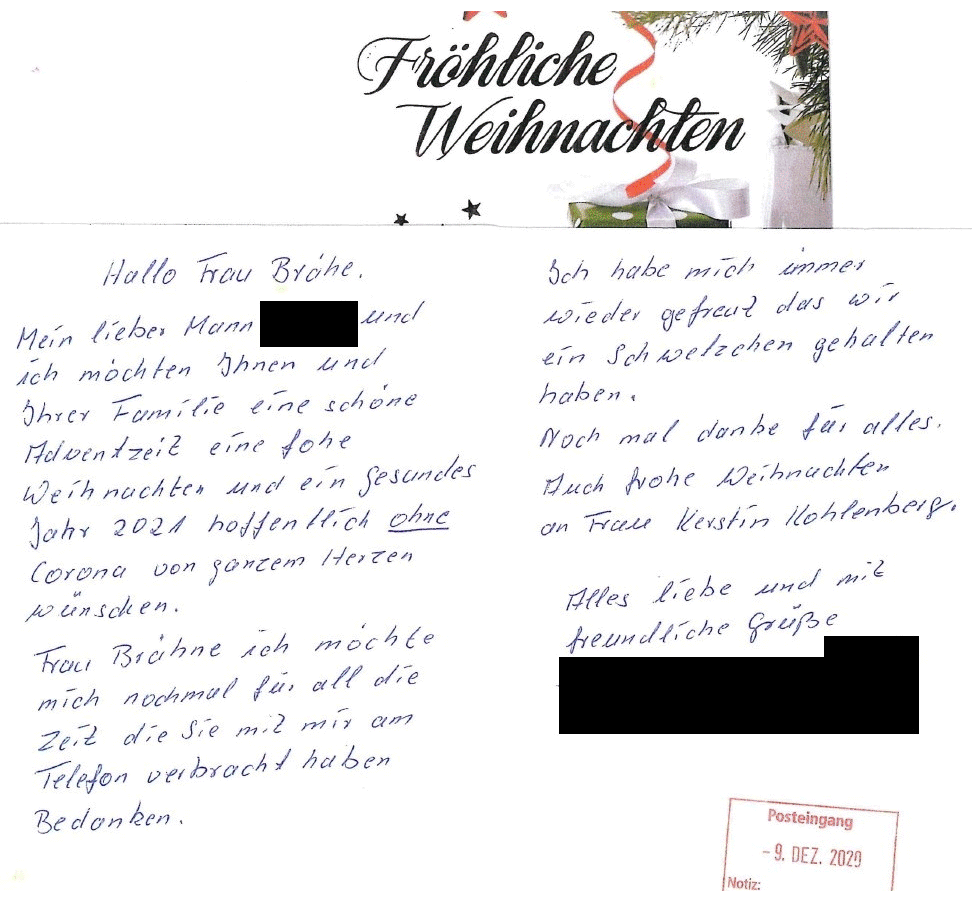 Fröhliche
Weihnachten
Hallo Frau Brähe.
Mein lieber Mann und
ich möchten Ihnen und
Ihrer Familie eine schöne
Adventzeit eine fohe
Weihnachten und ein gesundes
Jahr 2021 hoffentlich ohne
Corona von ganzem Herzen
wünschen.
Frau Brähne ich möchte
mich nochmal für all die
Zeit die Sie mit mir am
Telefon verbracht haben
Bedanken.
Ich habe mich immer
wieder gefreut das wir
ein Schwetzchen gehalten
haben.
Noch mal danke für alles.
Auch frohe Weihnachten
an Frau Kerstin Kohlenberg.
Alles liebe und mit
freundliche Grüße
Posteingang
- 9. DEZ. 2020
Notiz: